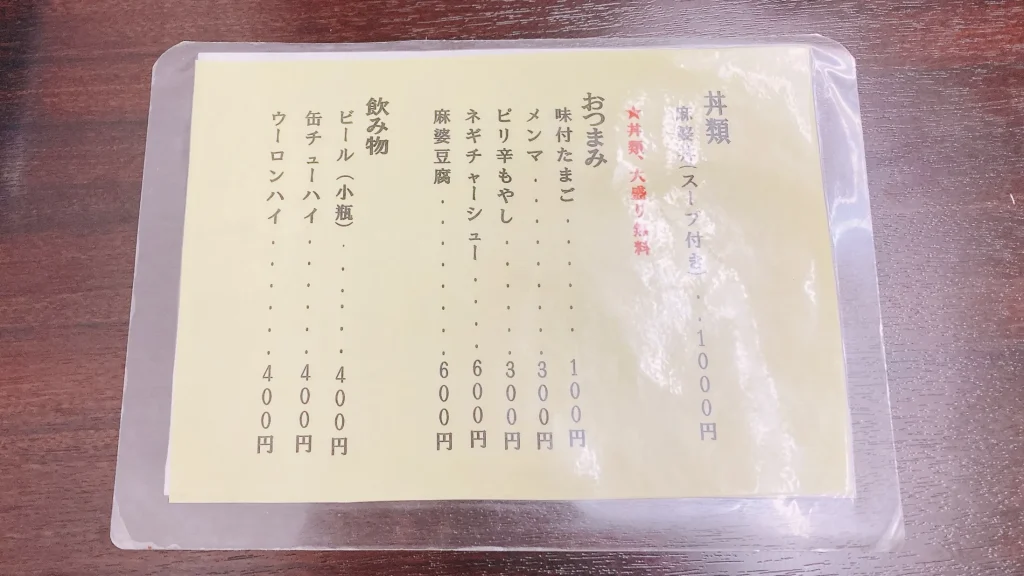 丼類
麻婆丼(スープ付き)..1000円
★丼類、大盛り無料
おつまみ
味付たまご....100円
メンマ.........300円
ピリ辛もやし......300円
ネギチャーシュー....600円
麻婆豆腐........600円
飲み物
ビール(小瓶)......400円
缶チューハイ......400円
ウーロンハイ......400円